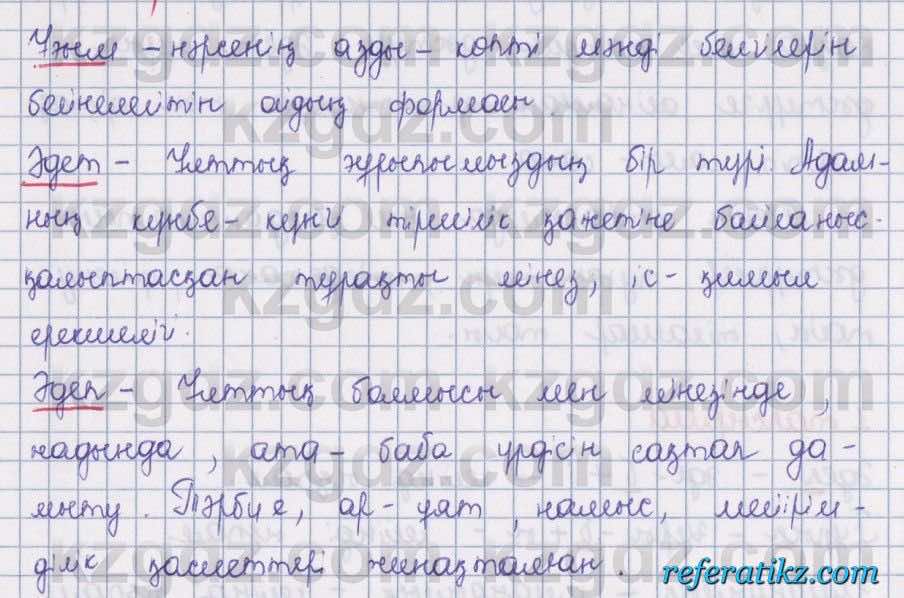 Ұғым – нәрсенің азды – көпті мәнді белгілерін
бейнелейтін ойдың формасы.
Әдет – Ұлттық ғұрпымыздың бір түрі. Адам-
ның күнбе – күнгі тіршілік қажетіне байланыс.
қалыптасқан тұрақты мінез, іс – қимыл
ерекшелігі.
Әдеп – Ұлттық болмысы мен мінезінде,
қадында, ата – баба үрдісін сақтап да-
мыту. Тәрбие, ар – ұят, намыс, мейірім-
ділік қасиеттері жинақталған.
kzgdz.com
referatikz.com